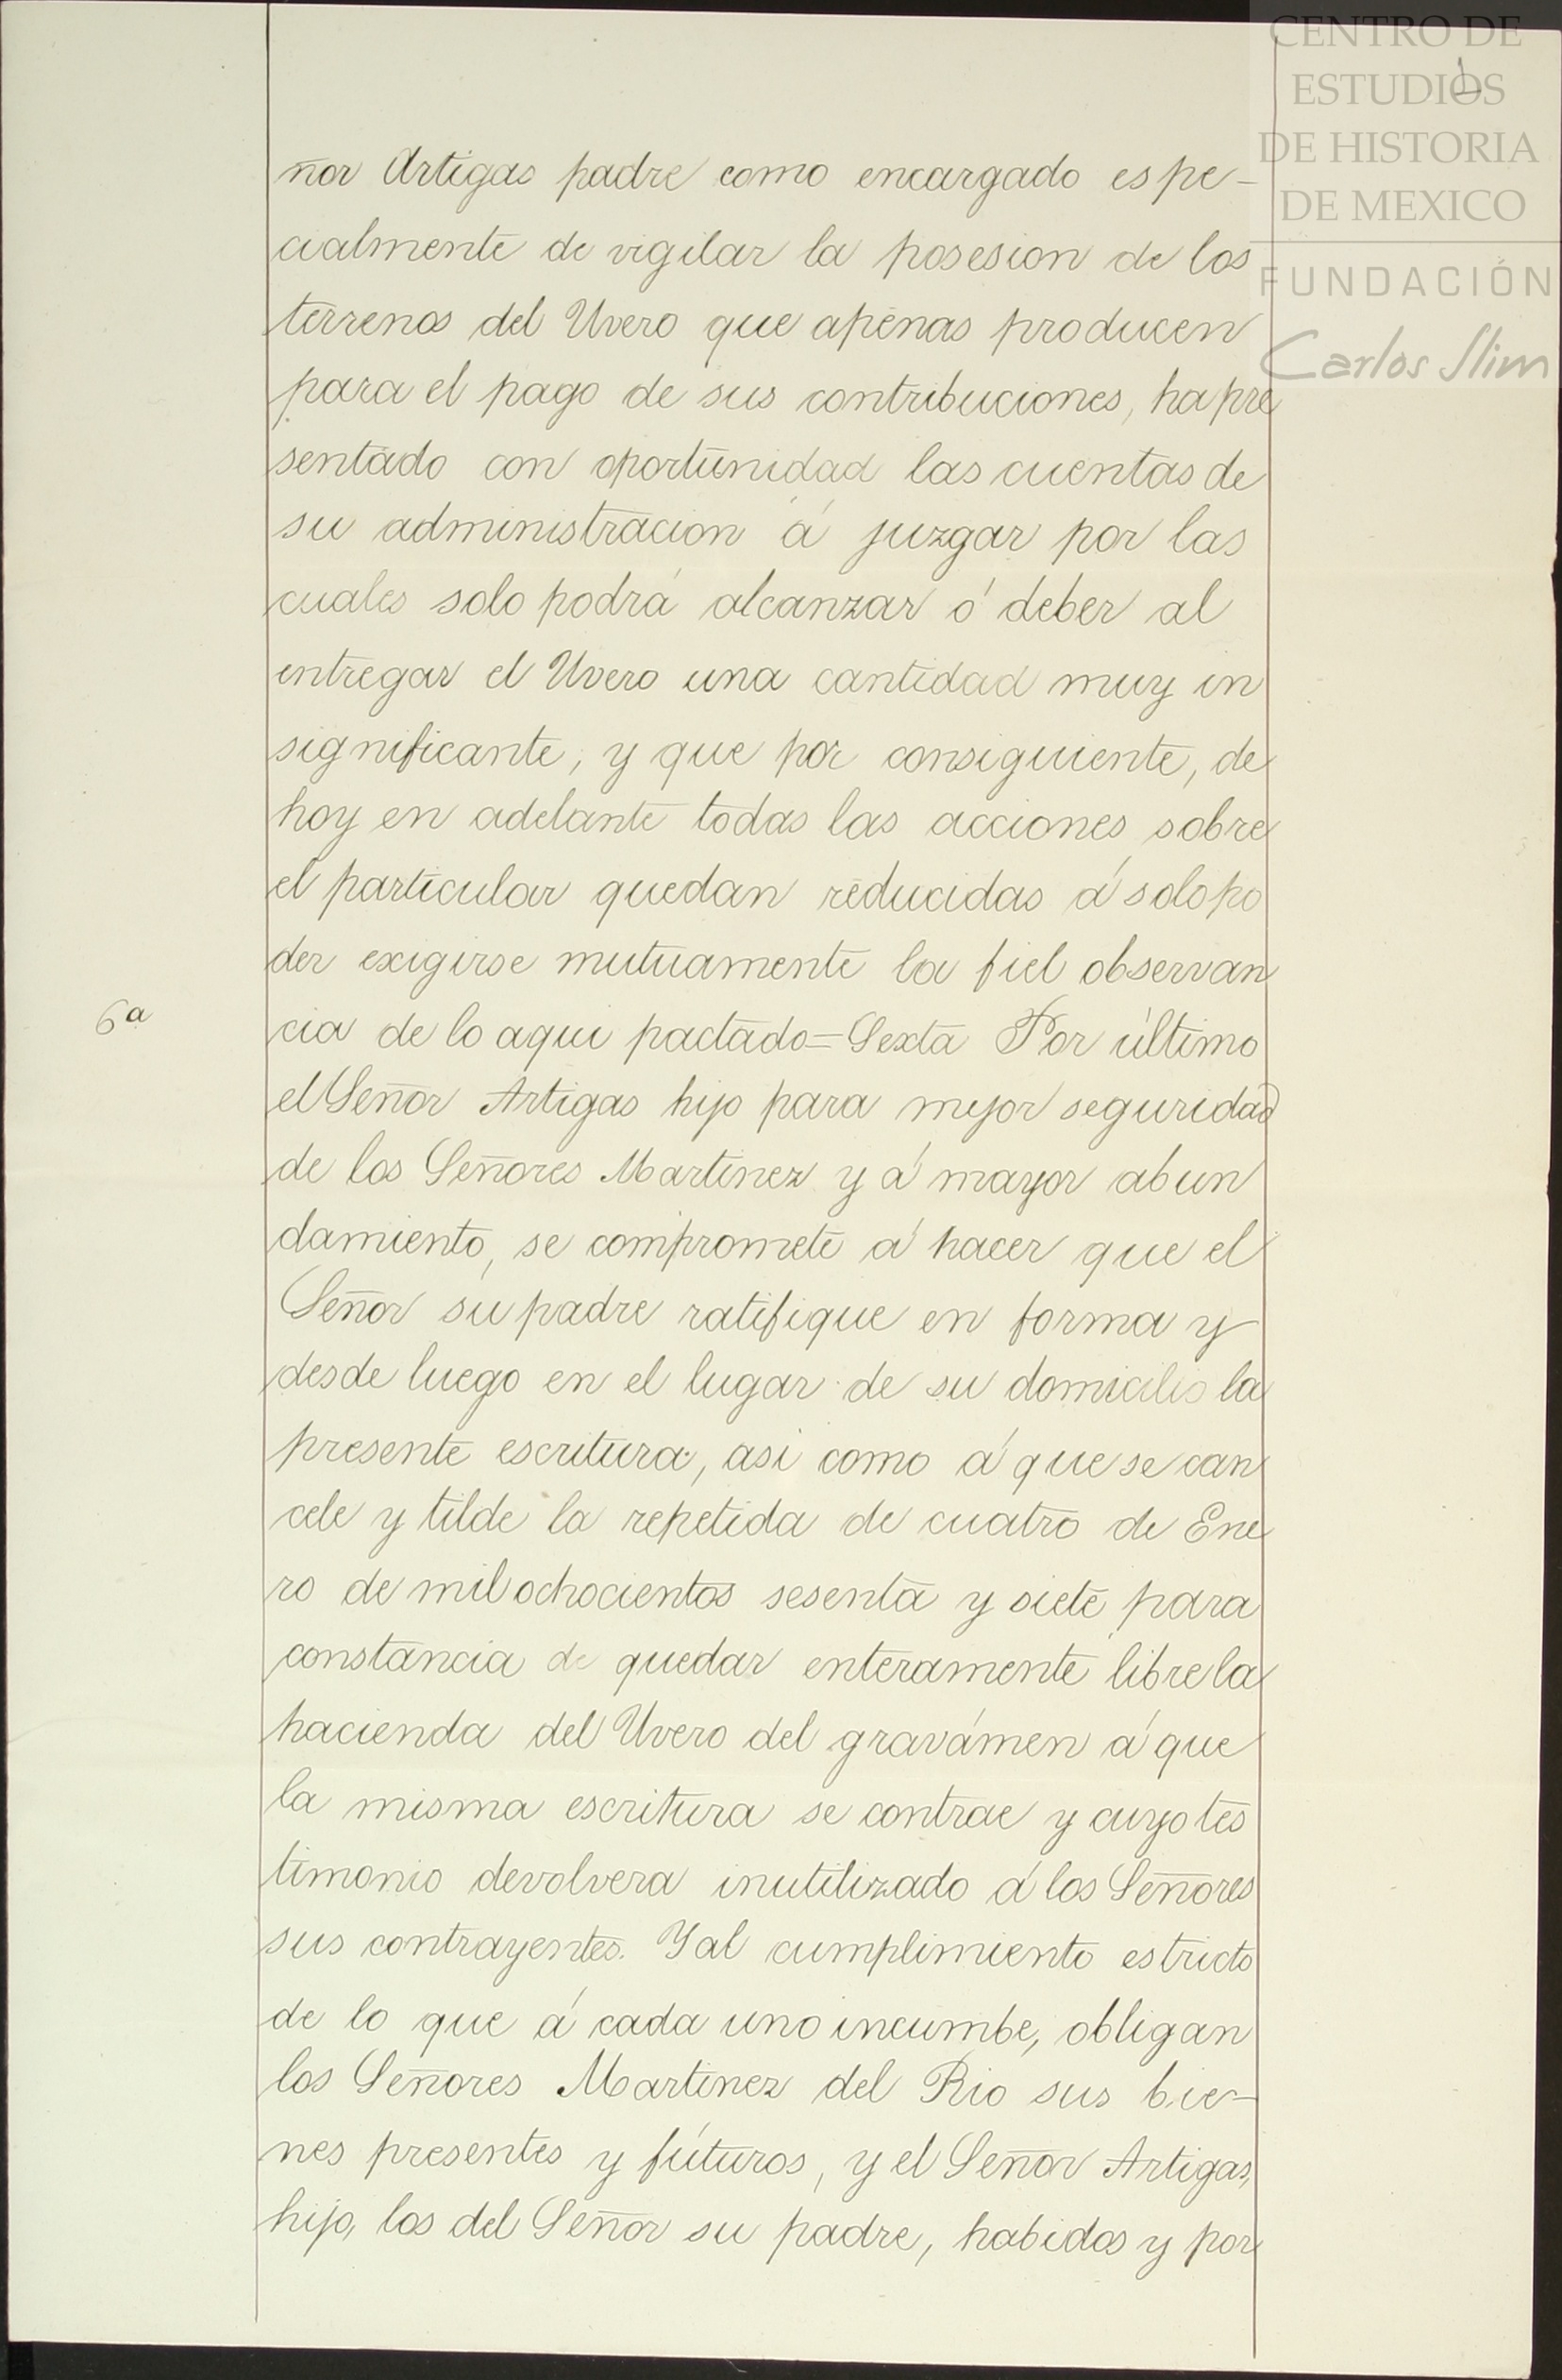 CENTRO DE
ESTUDIOS
DE HISTORIA
DE MEXICO
FUNDACIÓN
Carlos Slim
ñor Artigas padre como encargado espe-
cialmente de vigilar la posesion de los
terrenos del Uvero que apénas producen
para el pago de sus contribuciones, ha pre
sentado con oportunidad las cuentas de
su administracion á juzgar por las
cuales solo podrá alcanzar ó deber al
entregar el Uvero una cantidad muy in
significante, y que por consiguiente, de
hoy en adelante todas las acciones sobre
el particular quedan reducidas á solo po
der exigirse mutuamente la fiel observan
6ª
cia de lo aqui pactado=Sexta Por último
el Señor Artigas hijo para mejor seguridad
de los Señores Martinez y á mayor abun
damiento, se compromete á hacer que el
Señor su padre ratifique en forma y
desde luego en el lugar de su domicilio la
presente escritura, asi como á que se can
cele y tilde la repetida de cuatro de Ene
ro de mil ochocientos sesenta y siete para
constancia de quedar enteramente libre la
hacienda del Uvero del gravámen á que
la misma escritura se contrae y cuyo tes
timonio devolvera inutilizado á los Señores
sus contrayentes. Y al cumplimiento estricto
de lo que á cada uno incumbe, obligan
los Señores Martinez del Rio sus bie-
nes presentes y fúturos, y el Señor Artigas,
hijo, los del Señor su padre, habidos y por